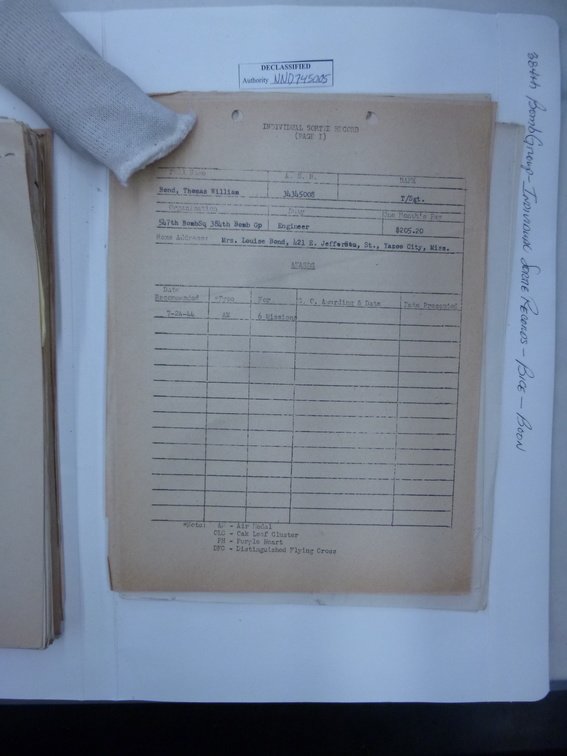 DECLASSIFIED
Authority NND745005
INDIVIDUAL SORTIE RECORD
(PAGE 1)
Full Name A. S. N. Rank
Bond, Thomas William 34345008 T/Sgt.
Organization Duty One Month's Pay
547th BombSq 384th Bomb Gp Engineer $205.20
Home Address: Mrs. Louise Bond, 421 E. St., Yazoo City, Miss.
AWARDS
Date
Recommended *Type For G. O. Awarding & Date Date Presented
AM 6 Missions
*Note: AM - Air Medal
CLG - Oak Leaf Cluster
PH - Purple Heart
DFC - Distinguished Flying Cross
384th Bomb Group - Individual Sortie Records - Bice - Boon